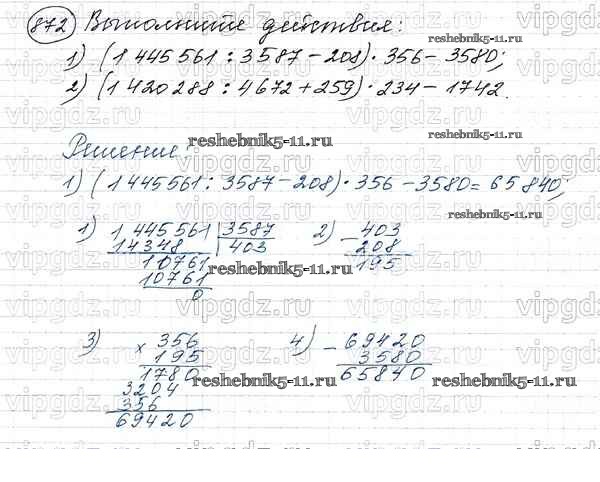 872 Выполните действия:
1) (1 445 561 : 3587 - 208) · 356 - 3580;
2) (1 420 288 : 4672 + 259) · 234 - 1742.
reshebnik5-11.ru
vipgdz.ru
Решение
reshebnik5-11.ru
1) (1 445 561 : 3587 - 208) · 356 - 3580 = 65 840;
reshebnik5-11.ru
1) 1 445 561 | 3587 2) - 403
14348 403 208
10761 195
10761
0
reshebnik5-11.ru
3) × 356 4) - 69420
195 3580
1780 65840
3204
356
69420
reshebnik5-11.ru
reshebnik5-11.ru